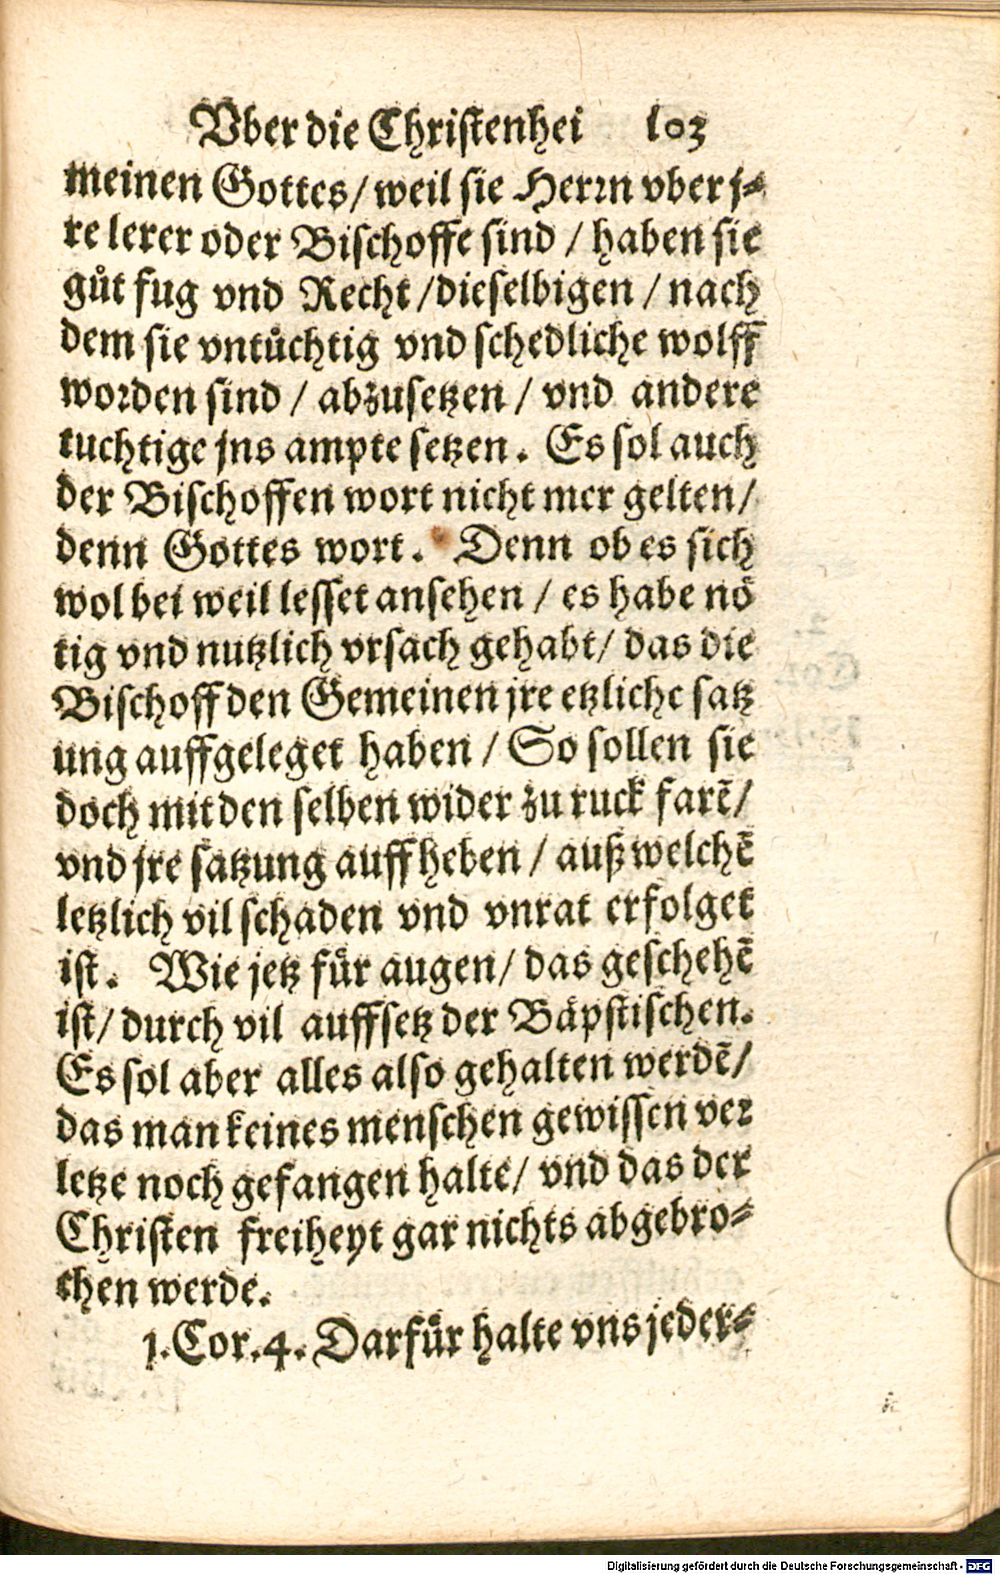 Vber die Christenhei 103
meinen Gottes/ weil sie Herrn vber j⸗
re lerer oder Bischoffe sind / haben sie
gůt fug vnd Recht /dieselbigen / nach
dem sie vntůchtig vnd schedliche wolff
worden sind / abzusetzen / vnd andere
tuchtige jns ampte setzen. Es sol auch
der Bischoffen wort nicht mer gelten/
denn Gottes wort. Denn ob es sich
wol bei weil lesset ansehen / es habe nö
tig vnd nutzlich vrsach gehabt/ das die
Bischoff den Gemeinen jre etzliche satz
ung auffgeleget haben / So sollen sie
doch mit den selben wider zu ruck farē/
vnd jre satzung auff heben / auß welchē
letzlich vil schaden vnd vnrat erfolget
ist. Wie jetz für augen/ das geschehē
ist/ durch vil auffsetz der Bäpstischen.
Es sol aber alles also gehalten werdē/
das man keines menschen gewissen ver
letze noch gefangen halte/ vnd das der
Christen freiheyt gar nichts abgebro⸗
chen werde.
1.Cor.4. Darfür halte vns jeder⸗
Digitalisierung gefördert durch die Deutsche Forschungsgemeinschaft - DFG